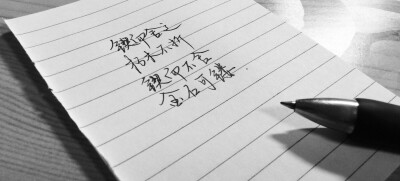 锲而舍之
朽木不折
锲而不舍
金石可镂